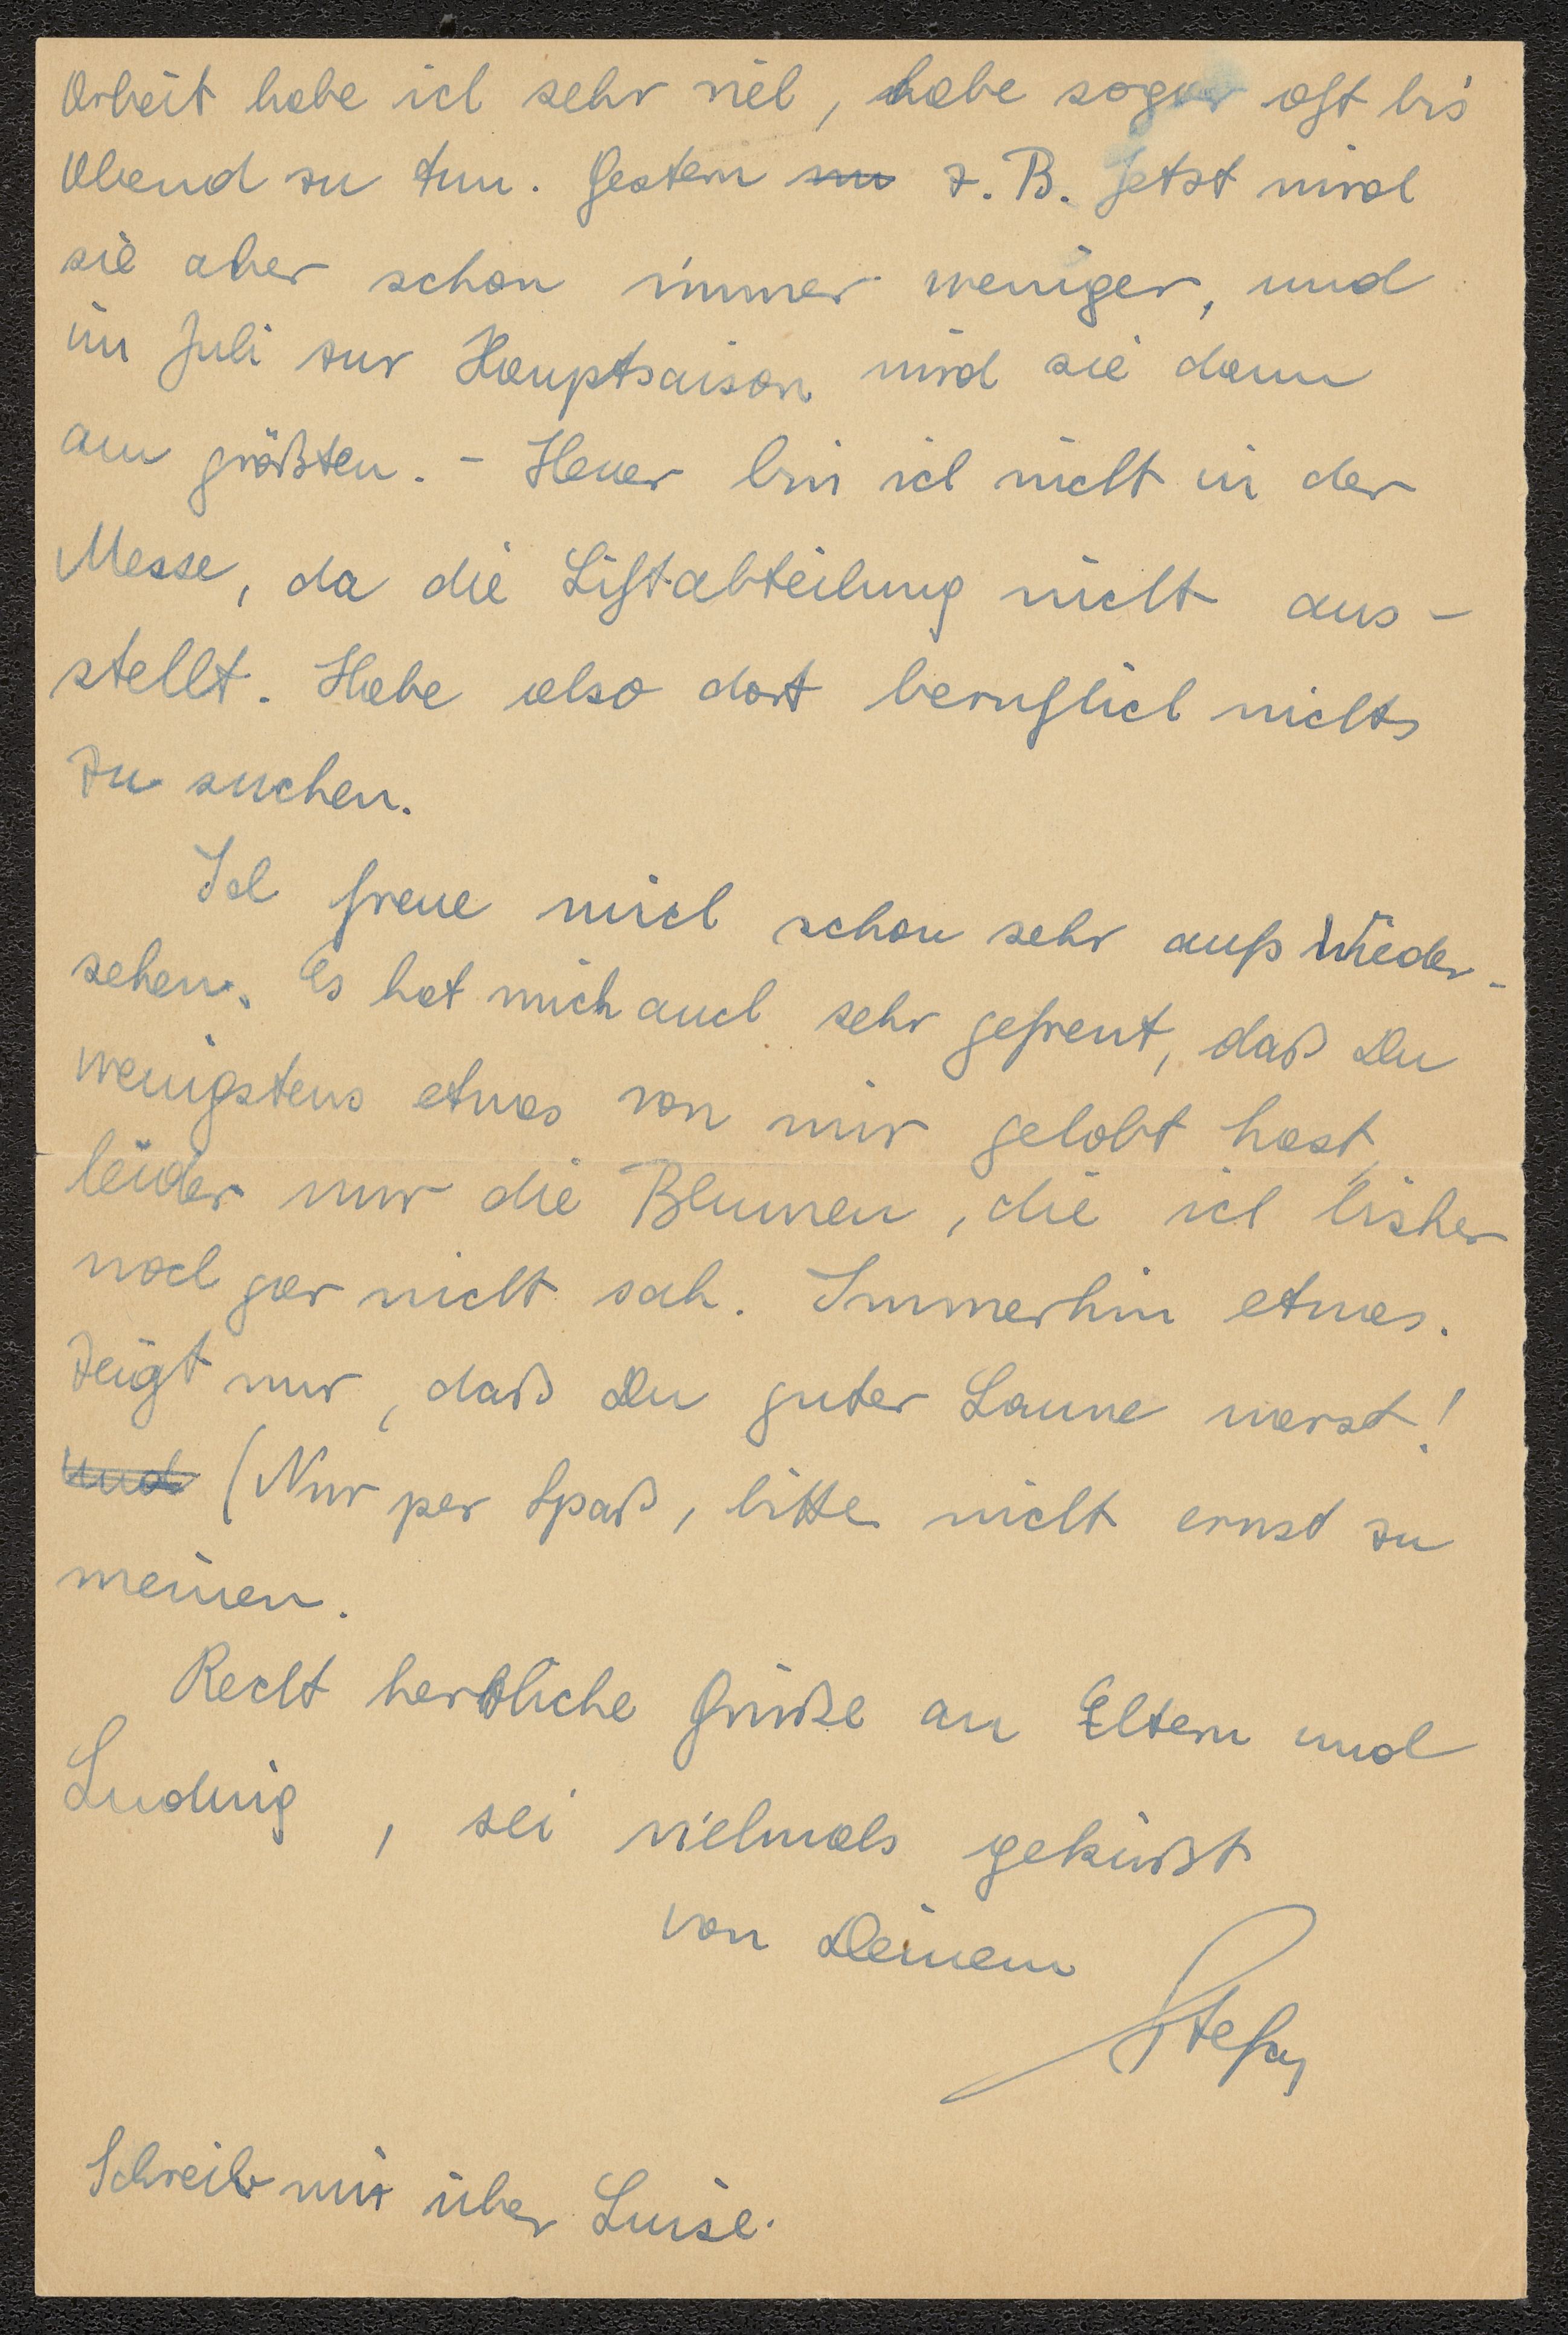 Arbeit habe ich sehr viel, habe sogar oft bis
Abend zu tun. Gestern z. B. Jetzt wird
sie aber schon immer weniger, und
im Juli zur Hauptsaison wird sie dann
am größten. - Heuer bin ich nicht in der
Messe, da die Liftabteilung nicht aus-
stellt. Habe also dort beruflich nichts
zu suchen.
Ich freue mich schon sehr aufs Wieder-
sehen. Es hat mich auch sehr gefreut, daß Du
wenigstens etwas von mir gelobt hast,
leider nur die Blumen, die ich bisher
noch gar nicht sah. Immerhin etwas.
Zeigt nur, daß Du guter Laune warst!
Und (Nur per Spaß, bitte nicht ernst zu
meinen.
Recht herzliche Grüße an Eltern und
Ludwig, sei vielmals geküßt
von Deinem
Schreib mir über Luise.